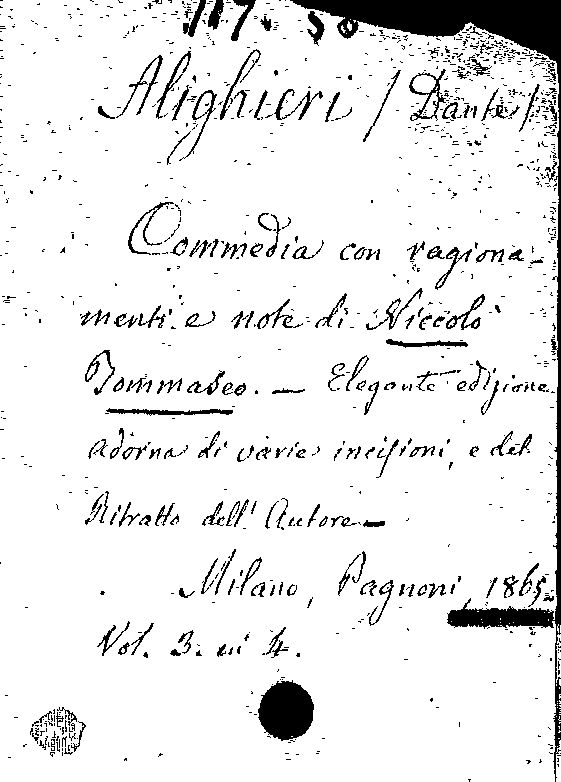 Alighieri / Dante /
Commedia con ragiona-
menti e note di Niccolò
Tommaseo. — Elegante edizione
adorna di varie incisioni, e del
Ritratto dell' Autore —
Milano, Pagnoni, 1865.
Vol. 3. in 4.